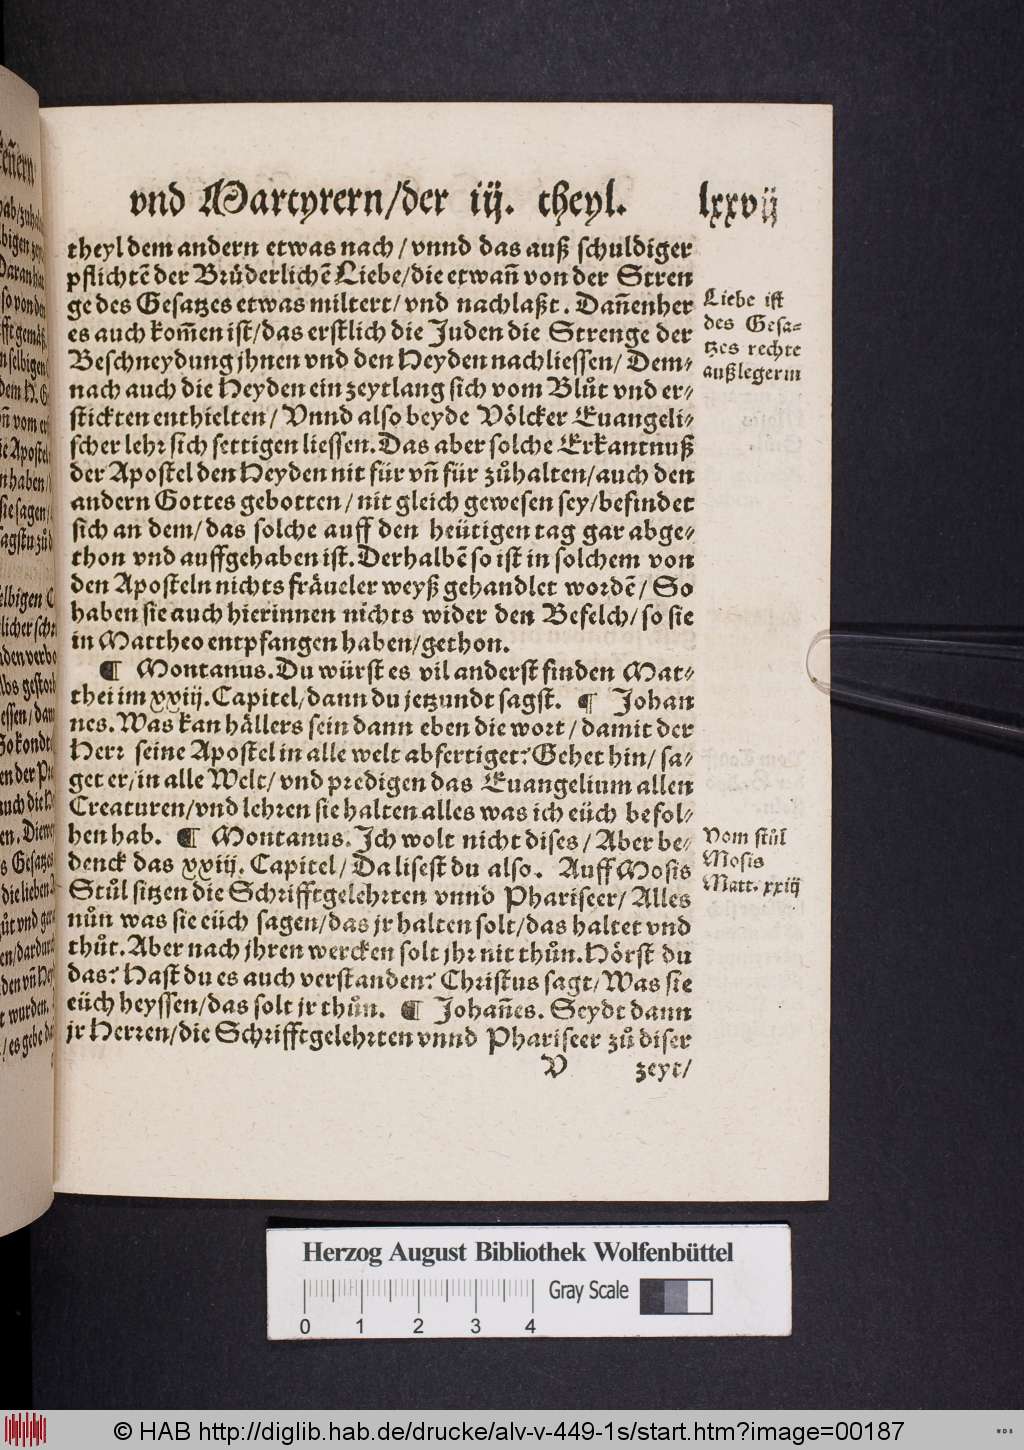 vnd Martyrern/der iij. theyl. lxxvij
theyl dem andern etwas nach/ vnnd das auß schuldiger
pflichtē der Brůderlichē Liebe/die etwan̄ von der Stren
ge des Gesatzes etwas miltert/ vnd nachlaßt. Dan̄enher
es auch kom̄en ist/das erstlich die Juden die Strenge der
Beschneydung jhnen vnd den Heyden nachliessen/ Dem⸗
nach auch die Heyden ein zeytlang sich vom Blůt vnd er⸗
stickten enthielten/ Vnnd also beyde Völcker Euangeli⸗
scher lehr sich settigen liessen. Das aber solche Erkantnuß
der Apostel den Heyden nit für vn̄ für zůhalten/auch den
andern Gottes gebotten/ nit gleich gewesen sey/befindet
sich an dem/ das solche auff den heütigen tag gar abge⸗
thon vnd auffgehaben ist. Derhalbē so ist in solchem von
den Aposteln nichts fräueler weyß gehandlet wordē/ So
haben sie auch hierinnen nichts wider den Befelch/ so sie
in Mattheo entpfangen haben/gethon.
¶ Montanus. Du würst es vil anderst finden Mat⸗
thei im xxiij. Capitel/dann du jetzundt sagst. ¶ Johan
nes. Was kan hällers sein dann eben die wort/ damit der
Herr seine Apostel in alle welt abfertiget? Gehet hin/ sa⸗
get er/in alle Welt/ vnd predigen das Euangelium allen
Creaturen/vnd lehren sie halten alles was ich eüch befol⸗
hen hab. ¶ Montanus. Ich wolt nicht dises/ Aber be⸗
denck das xxiij. Capitel/ Da lisest du also. Auff Mosis
Stůl sitzen die Schrifftgelehrten vnnd Phariseer/ Alles
nůn was sie eüch sagen/das jr halten solt/das haltet vnd
thůt. Aber nach jhren wercken solt jhr nit thůn. Hörst du
das? Hast du es auch verstanden? Christus sagt/ Was sie
eüch heyssen/das solt jr thůn. ¶ Johan̄es. Seydt dann
jr Herren/die Schrifftgelehrten vnnd Phariseer zů diser
V zeyt/
Liebe ist
des Gesa⸗
tzes rechte
außlegerin
Vom stůl
Mosis
Matt. xxiij
Herzog August Bibliothek Wolfenbüttel
Gray Scale
0 1 2 3 4
© HAB http://diglib.hab.de/drucke/alv-v-449-1s/start.htm?image=00187